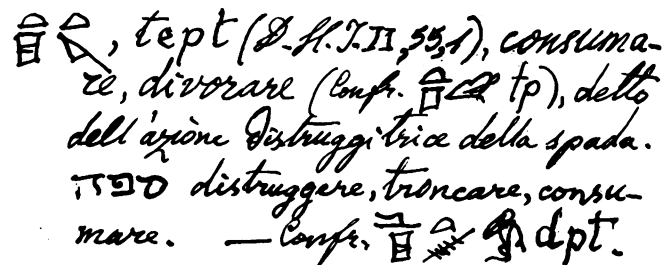 , tept (D.H.I.II, 55, 1), consuma-
re, divorare (Confr. tp), detto
dell'azione distruggitrice della spada.
ספה distruggere, troncare, consu-
mare. — Confr. dpt.